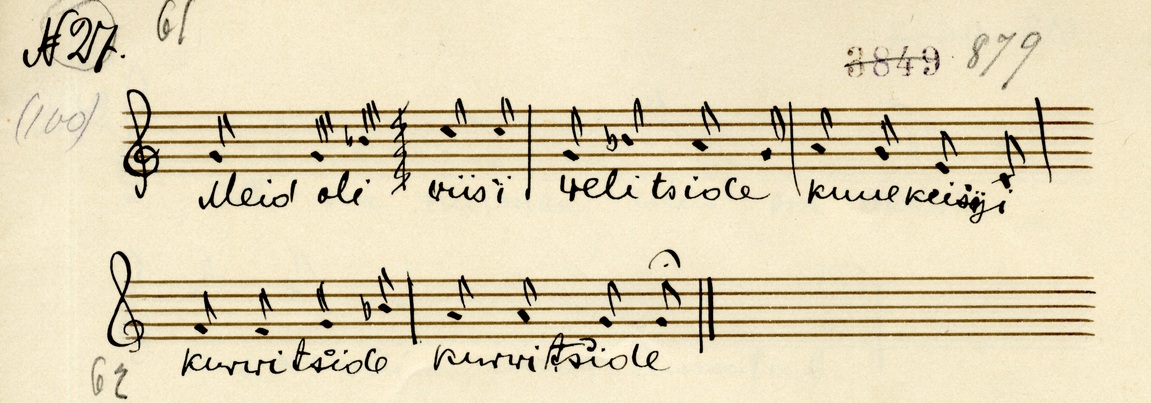 № 27. 61
3849 879
(100)
Meid oli wiisi welitside kuue keisyi
kurwitside kurwitside
62